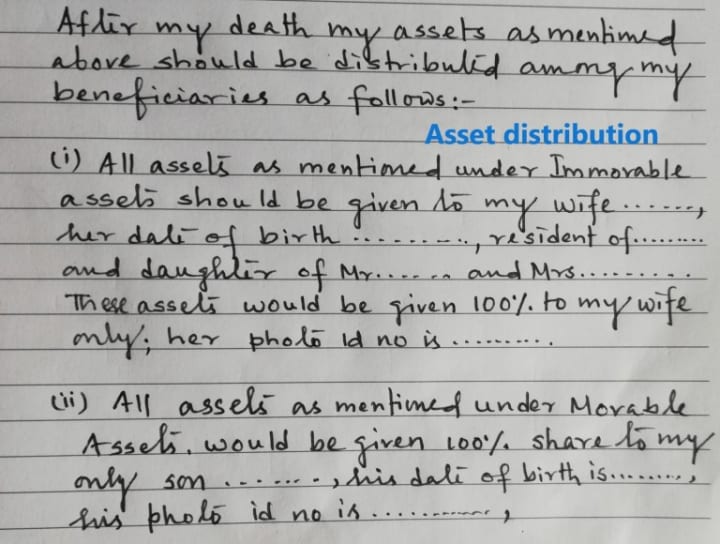 After my death my assets as mentioned
above should be distributed among my
beneficiaries as follows:-
Asset distribution
(i) All assets as mentioned under Immovable
assets should be given to my wife ......,
her date of birth .........., resident of.........
and daughter of Mr....... and Mrs..........
These assets would be given 100%. to my wife
only; her photo id no is ..........
(ii) All assets as mentioned under Movable
Assets. would be given 100%. share to my
only son ......., his date of birth is........,
his photo id no is ............,